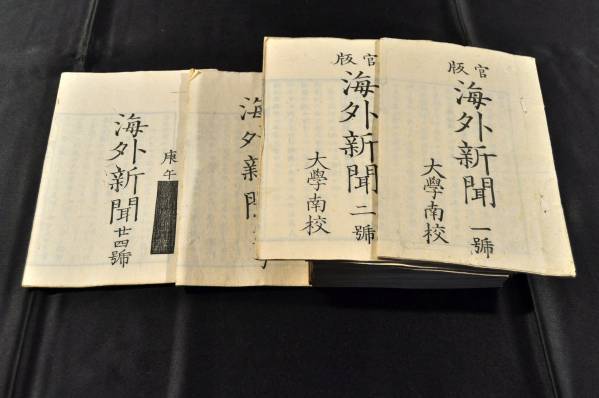 官版
海外新聞
一號
大學南校
官版
海外新聞
二號
大學南校
海外新聞
海外新聞
廿四號
庚午